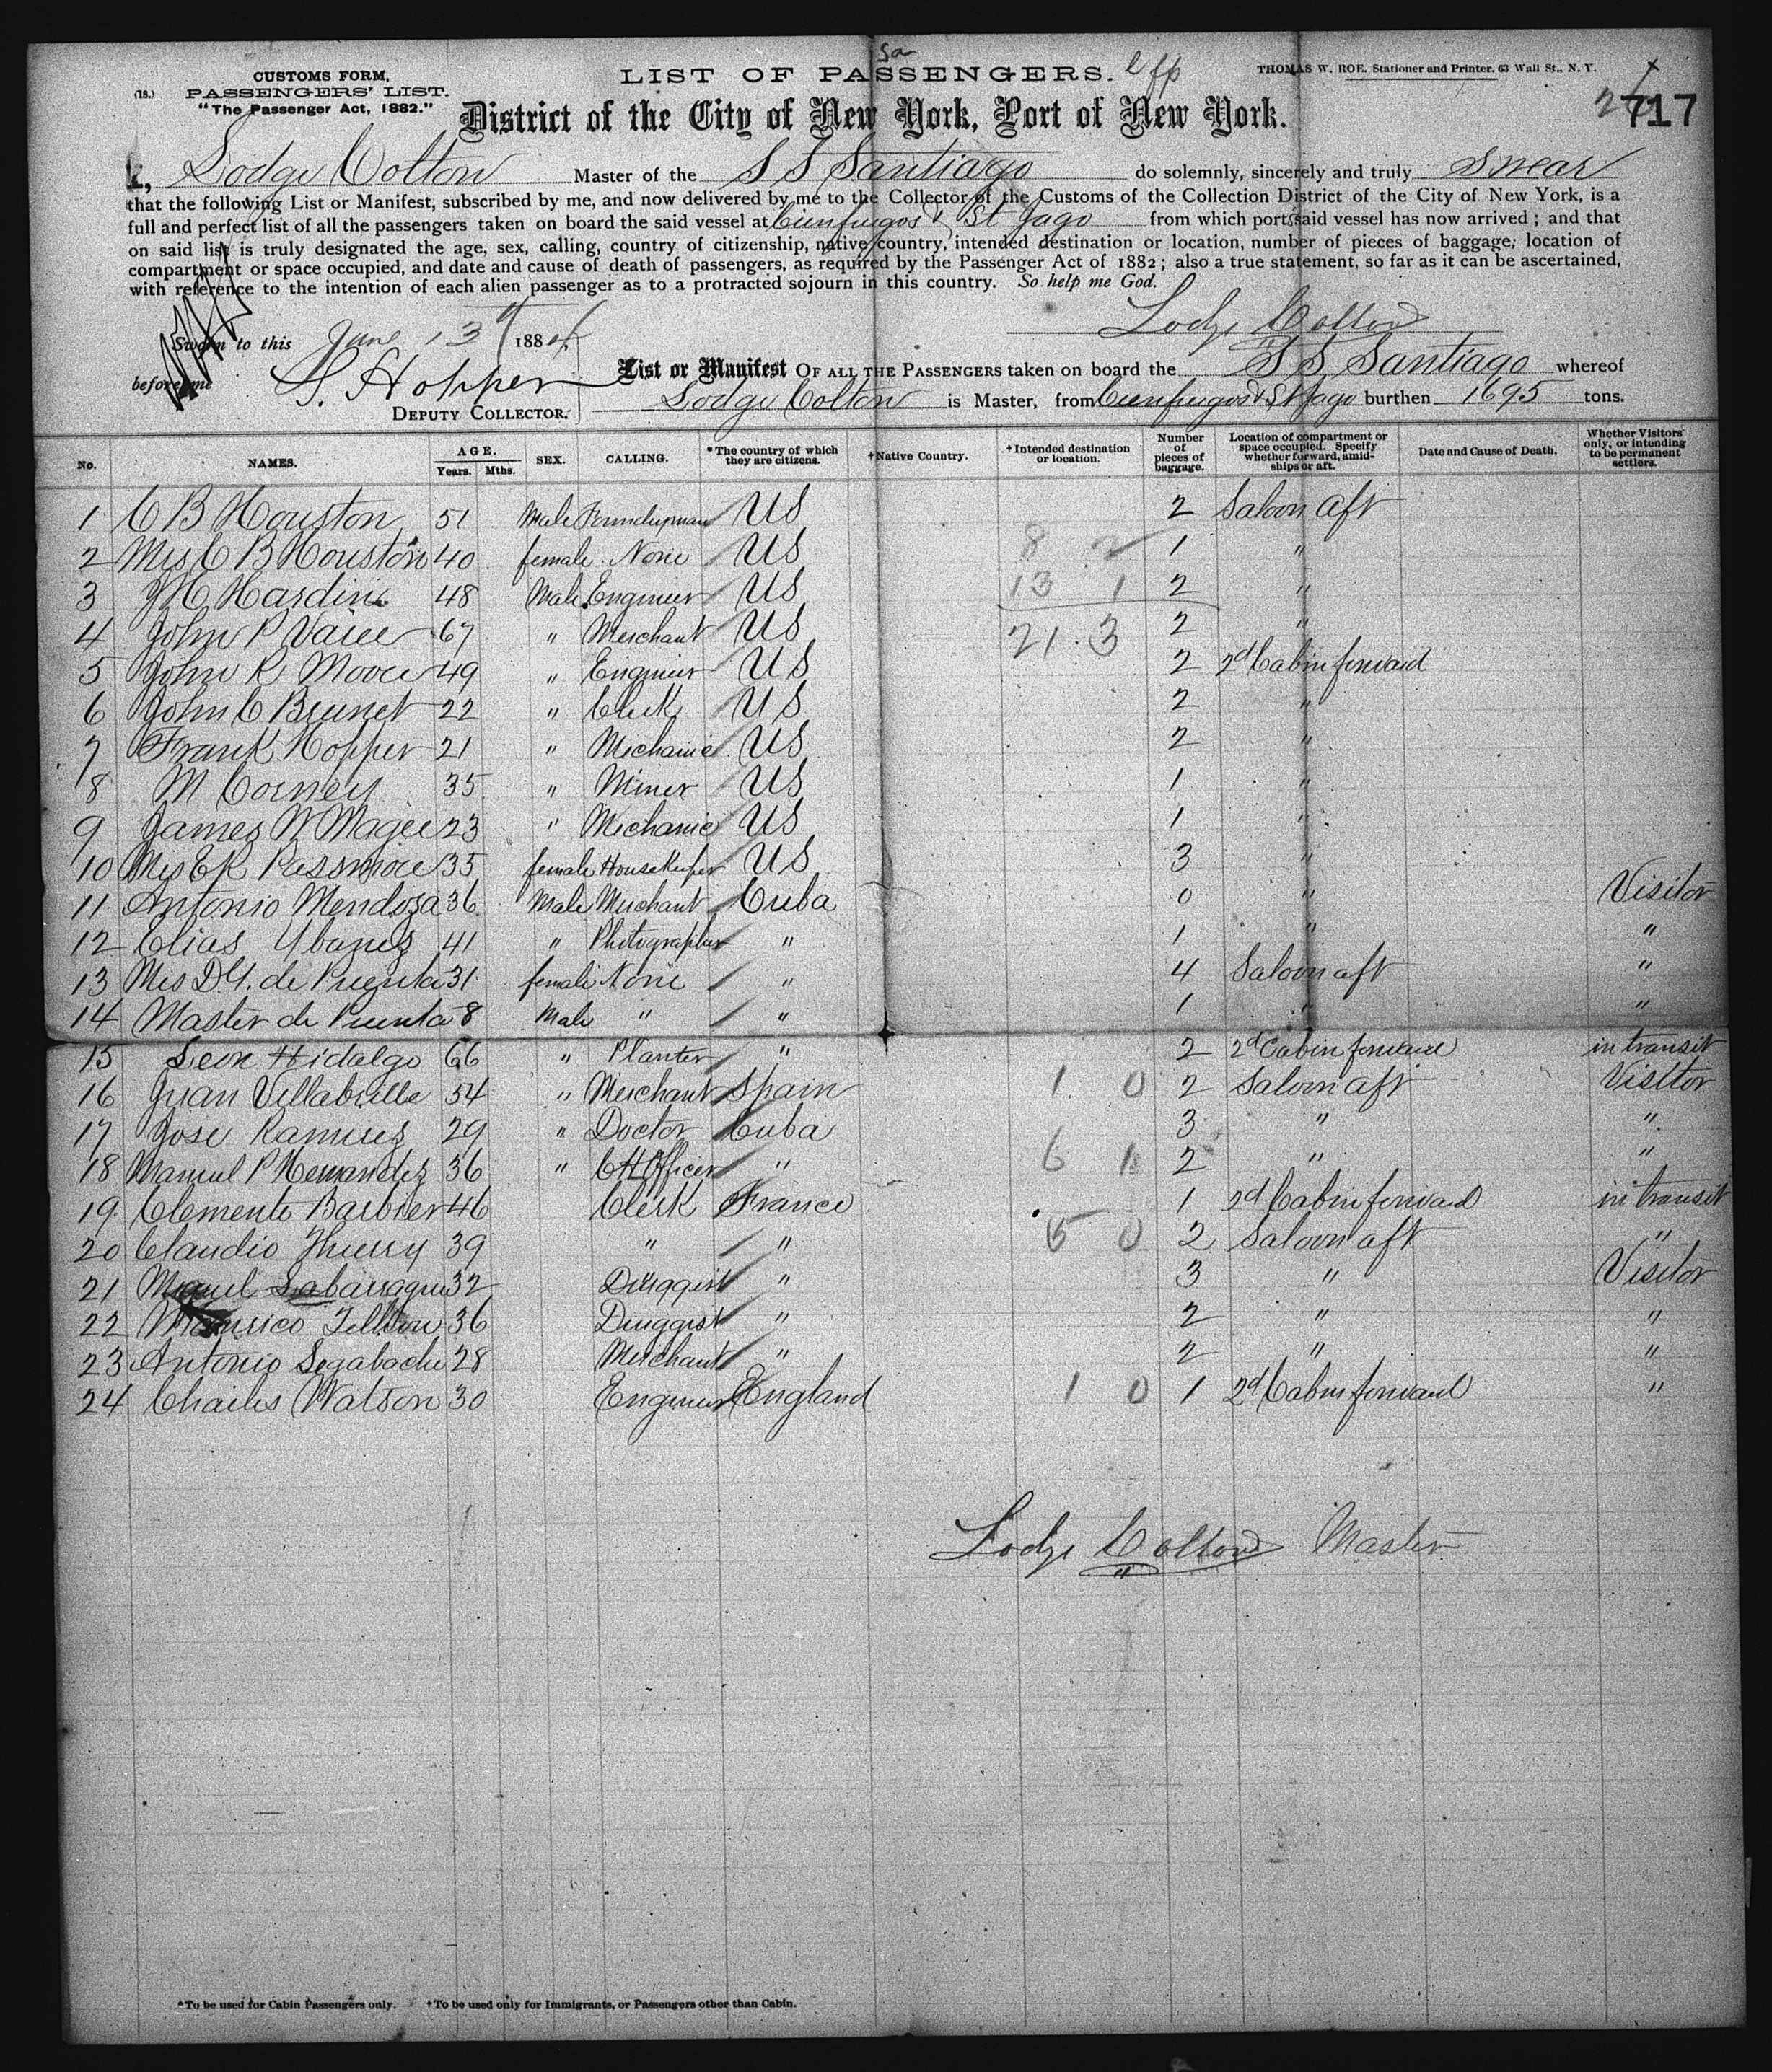 Sa
CUSTOMS FORM,
(18.) PASSENGERS' LIST.
"The Passenger Act, 1882."
LIST OF PASSENGERS.
THOMAS W. ROE. Stationer and Printer. 63 Wall St., N. Y.
717
District of the City of New York, Port of New York.
I, Lodge Colton Master of the S S Santiago do solemnly, sincerely and truly swear
that the following List or Manifest, subscribed by me, and now delivered by me to the Collector of the Customs of the Collection District of the City of New York, is a
full and perfect list of all the passengers taken on board the said vessel at Cienfuegos & St Jago from which port said vessel has now arrived ; and that
on said list is truly designated the age, sex, calling, country of citizenship, native country, intended destination or location, number of pieces of baggage; location of
compartment or space occupied, and date and cause of death of passengers, as required by the Passenger Act of 1882 ; also a true statement, so far as it can be ascertained,
with reference to the intention of each alien passenger as to a protracted sojourn in this country. So help me God.
Lodge Colton
Sworn to this June 13th 1884,
before me S. Hopper
DEPUTY COLLECTOR.
List or Manifest OF ALL THE PASSENGERS taken on board the S S Santiago whereof
Lodge Colton is Master, from Cienfuegos & St Jago burthen 1695 tons.
No. NAMES. AGE. Years. Mths. SEX. CALLING. *The country of which they are citizens. †Native Country. †Intended destination or location. Number of pieces of baggage. Location of compartment or space occupied. Specify whether forward, amidships or aft. Date and Cause of Death. Whether Visitors only, or intending to be permanent settlers.
1 C B Houston 51 Male US 2 Saloon aft
2 Mrs C B Houston 40 female None US 8 2 1 "
3 J H Harding 48 Male Engineer US 13 1 2 "
4 John P 67 " Merchant US 21.3 2 "
5 John R Moore 49 " Engineer US 2 2d Cabin forward
6 John C Brunet 22 " Clerk US 2 "
7 Frank Hopper 21 " Mechanic US 2 "
8 M Corney 35 " Miner US 1 "
9 James W Magee 23 " Mechanic US 1 "
10 Mrs E R Passmore 35 female Housekeeper US 3 "
11 Antonio Mendoza 36 Male Merchant Cuba 0 " Visitor
12 Elias Ybanez 41 " Photographer " 1 " "
13 Mrs D Y. de Puenta 31 female None " 4 Saloon aft "
14 Master de Puenta 8 Male " " 1 " "
15 Leon Hidalgo 66 " Planter " 2 2d Cabin forward in transit
16 Juan Villabrille 54 " Merchant Spain 1 0 2 Saloon aft Visitor
17 Jose Ramirez 29 " Doctor Cuba 3 " "
18 Manuel P Hernandez 36 " C H Officer " 6 1 2 " "
19 Clemente Barbier 46 Clerk France 1 2d Cabin forward in transit
20 Claudio Thierry 39 " " 5 0 2 Saloon aft "
21 Miguel Labarraque 32 Druggist " 3 " Visitor
22 36 Druggist " 2 " "
23 Antonio 28 Merchant " 2 " "
24 Charles Watson 30 Engineer England 1 0 1 2d Cabin forward "
Lodge Colton Master
*To be used for Cabin Passengers only. †To be used only for Immigrants, or Passengers other than Cabin.